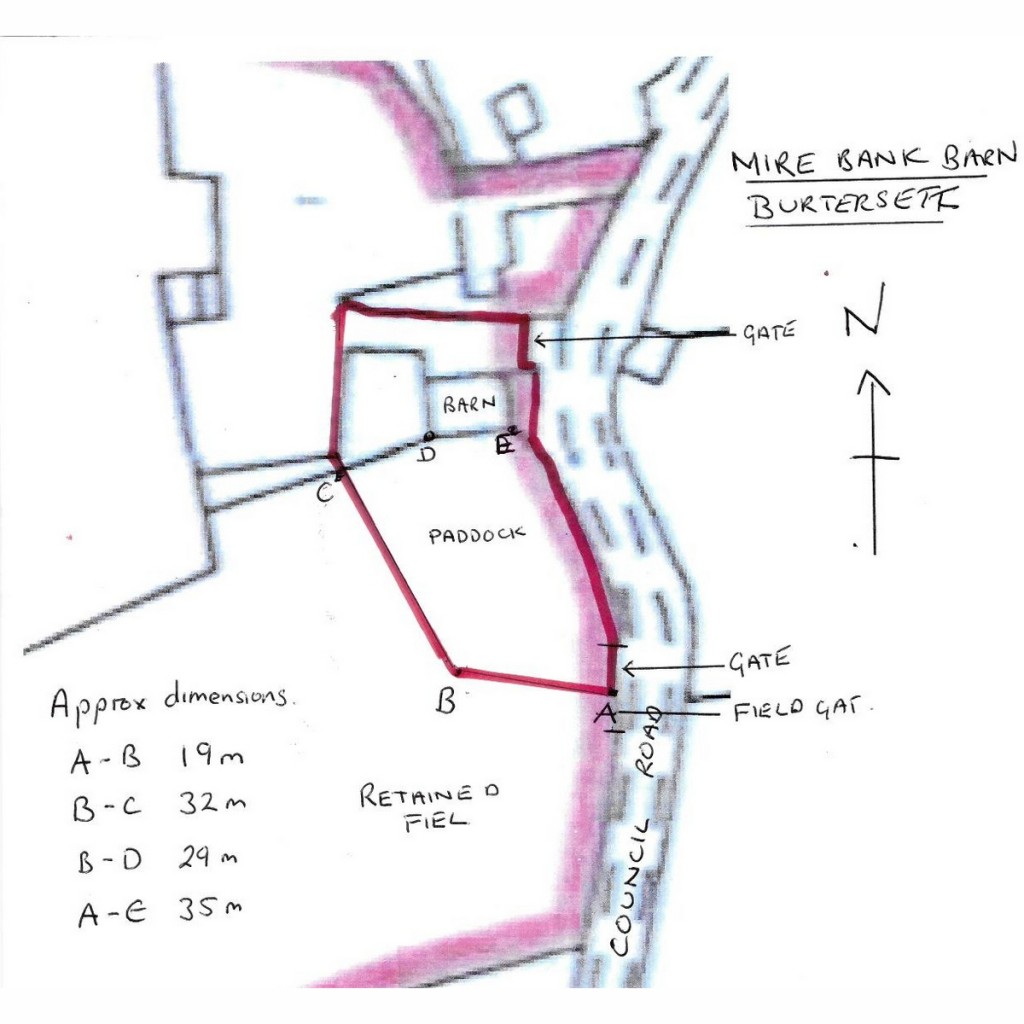 MIRE BANK BARN
BURTERSETT
N
GATE
BARN
D
E
C
PADDOCK
GATE
B
A
FIELD GAT.
Approx dimensions.
A-B 19m
B-C 32m
B-D 29m
A-E 35m
RETAINED
FIEL
COUNCIL ROAD